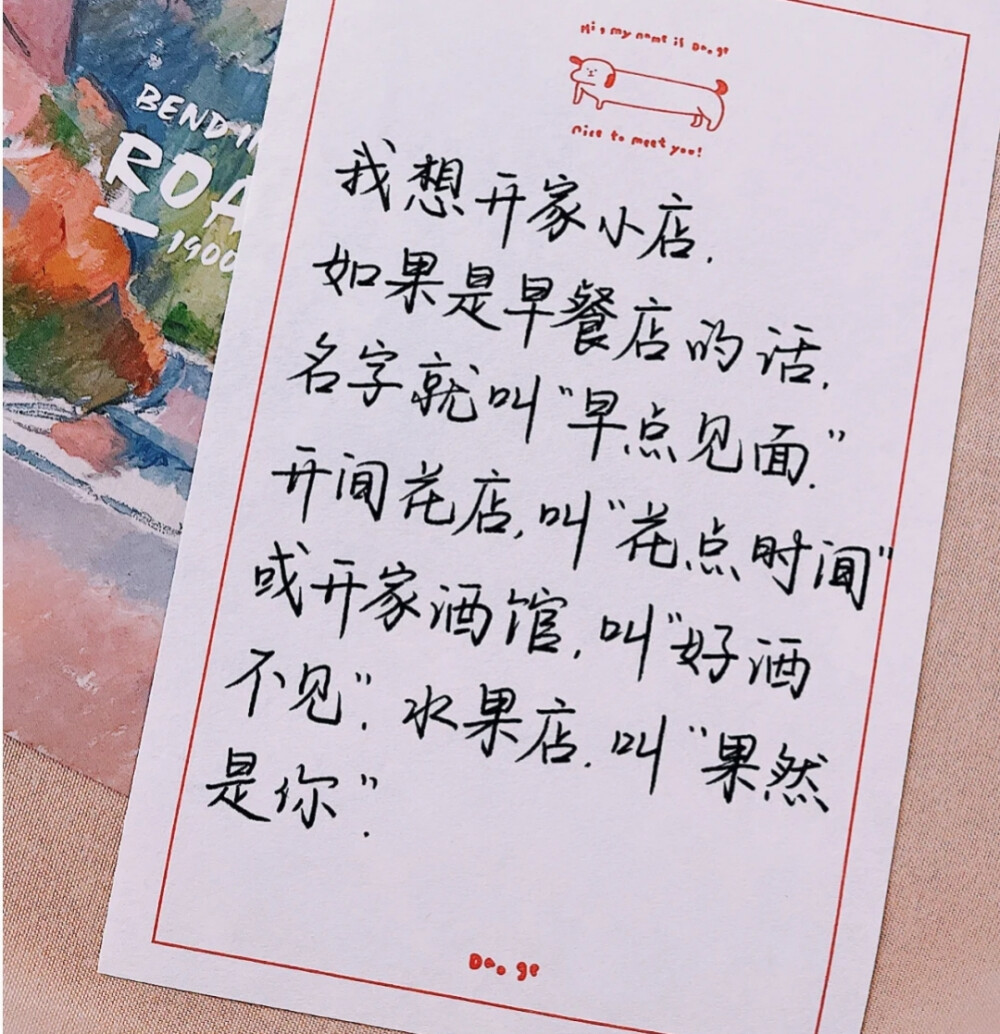 BENDI
ROA
1900
Hi, my name is Da.ge
Nice to meet you!
我想开家小店.
如果是早餐店的话.
名字就叫"早点见面".
开间花店.叫"花点时间"
或开家酒馆.叫"好酒
不见".水果店.叫"果然
是你".
Da.ge